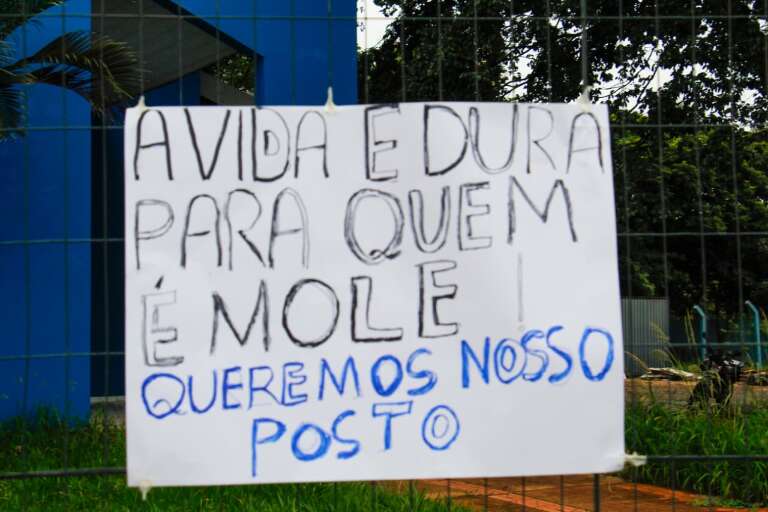 A VIDA E DURA
PARA QUEM
É MOLE !
QUEREMOS NOSSO
POSTO